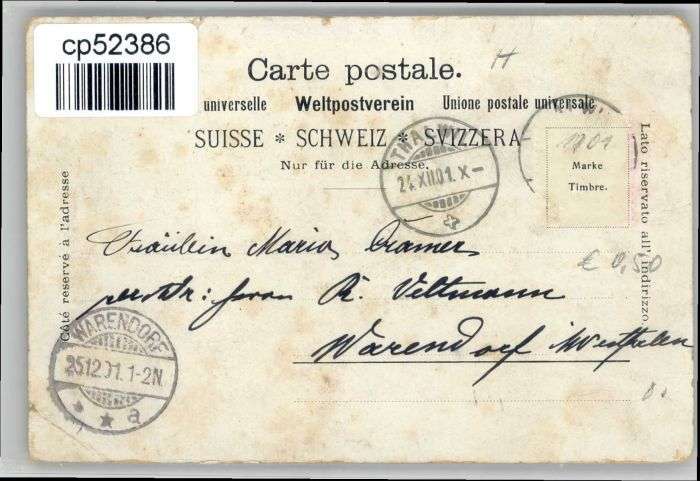 cp52386
H
Carte postale.
universelle Weltpostverein Unione postale universale
SUISSE * SCHWEIZ * SVIZZERA
Nur für die Adresse.
24.XII.01.X-
1901
Marke
Timbre.
Côté réservé à l'adresse
Lato riservato all'indirizzo
Fräulein Maria Cramer
€ 0,50
Herrn R. Veltmann
Warendorf i/Westfalen
WARENDORF
25.12.01.1-2N.
* * a